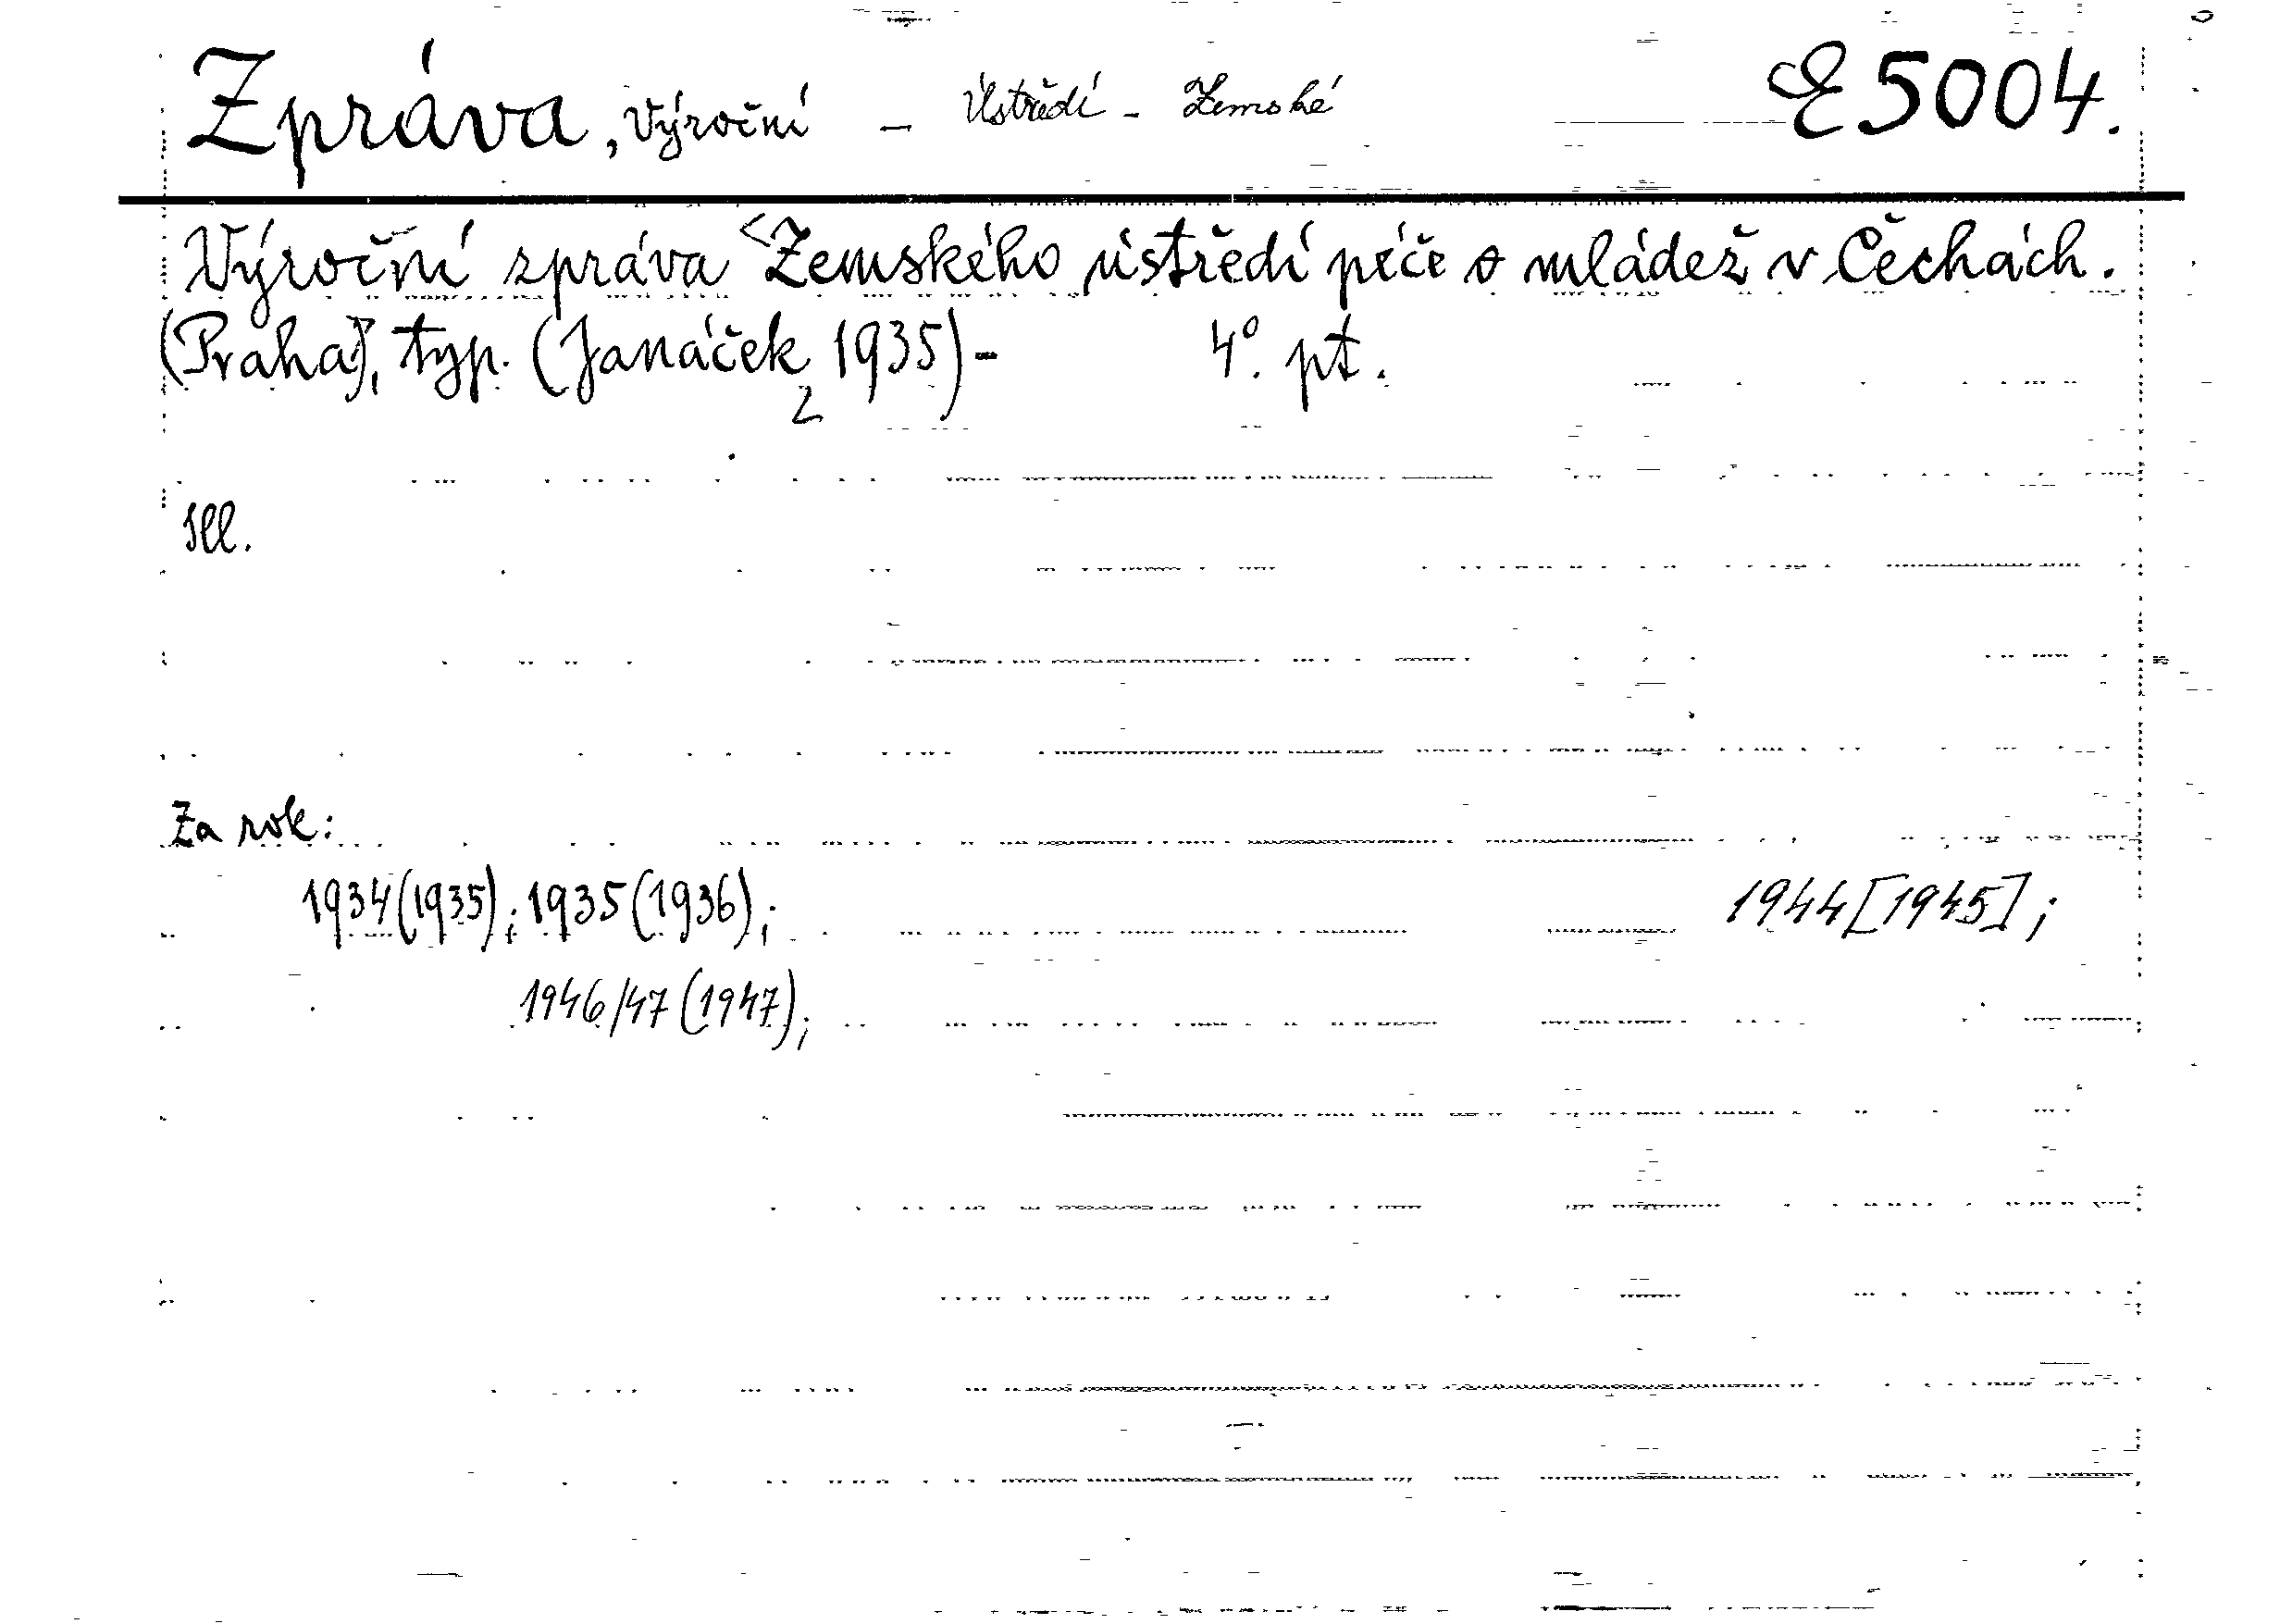 Zpráva, Výroční – Ústředí - Zemské E 5004.
Výroční zpráva Zemského ústředí péče o mládež v Čechách.
(Praha), typ. (Janáček, 1935)- 4°. pt.
Ill.
Za rok:
1934(1935); 1935(1936); 1944[1945];
1946/47(1947);